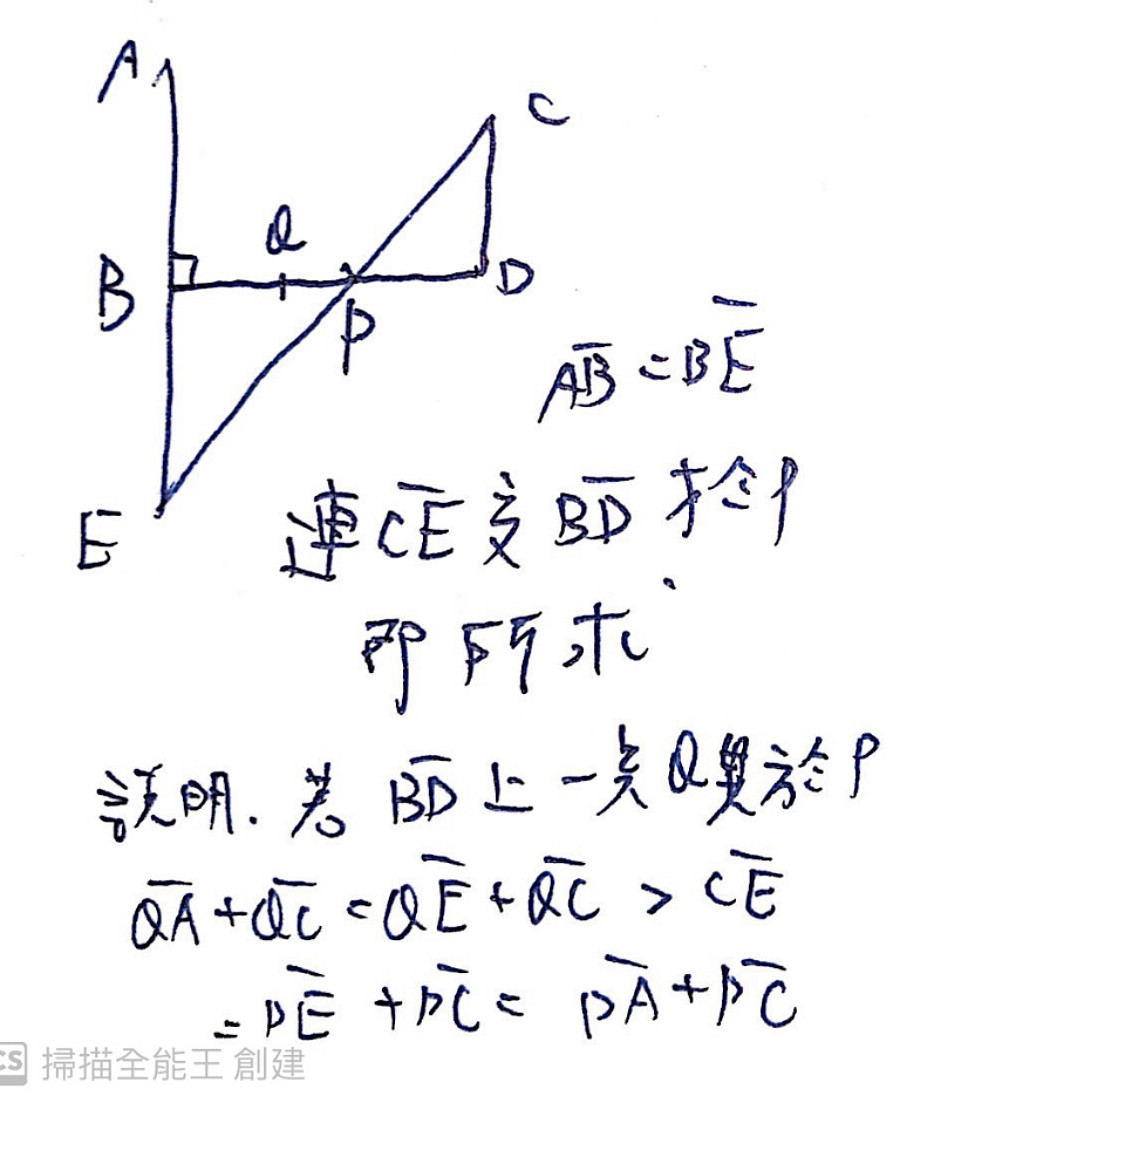 A
C
Q
B
D
P
A̅B̅ = B̅E̅
E
連 C̅E̅ 交 B̅D̅ 於 P
即所求
說明. 若 B̅D̅ 上一点 Q 異於 P
Q̅A̅ + Q̅C̅ = Q̅E̅ + Q̅C̅ > C̅E̅
= P̅E̅ + P̅C̅ = P̅A̅ + P̅C̅
CS 掃描全能王 創建